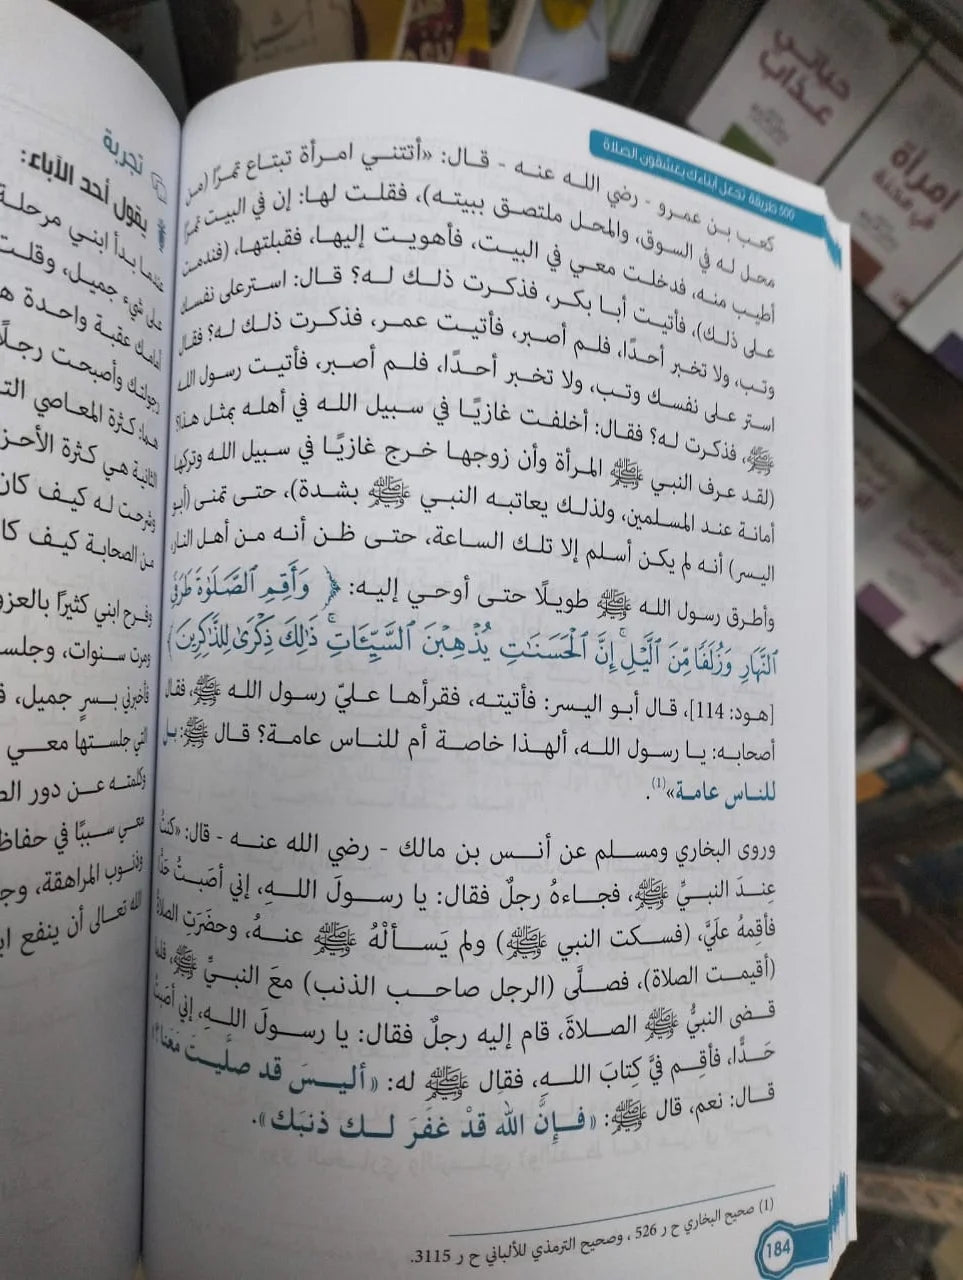 500 طريقة تجعل أبناءك يعشقون الصلاة
كعب بن عمرو - رضي الله عنه - قال: «أتتني امرأة تبتاع تمرًا (من
محل له في السوق، والمحل ملتصق ببيته)، فقلت لها: إن في البيت تمرًا
أطيب منه، فدخلت معي في البيت، فأهويت إليها، فقبلتها، (فندمت
على ذلك)، فأتيت أبا بكر، فذكرت ذلك له؟ قال: استر على نفسك
وتب، ولا تخبر أحدًا، فلم أصبر، فأتيت عمر، فذكرت ذلك له؟ فقال
استر على نفسك وتب، ولا تخبر أحدًا، فلم أصبر، فأتيت رسول الله
ﷺ، فذكرت له؟ فقال: أخلفت غازيًا في سبيل الله في أهله بمثل هذا؟
(لقد عرف النبي ﷺ المرأة وأن زوجها خرج غازيًا في سبيل الله وتركها
أمانة عند المسلمين، ولذلك يعاتبه النبي ﷺ بشدة)، حتى تمنى (أبو
اليسر) أنه لم يكن أسلم إلا تلك الساعة، حتى ظن أنه من أهل النار،
وأطرق رسول الله ﷺ طويلًا حتى أوحي إليه: ﴿وَأَقِمِ ٱلصَّلَوٰةَ طَرَفَيِ
ٱلنَّهَارِ وَزُلَفًا مِّنَ ٱلَّيْلِ ۚ إِنَّ ٱلْحَسَنَٰتِ يُذْهِبْنَ ٱلسَّيِّـَٔاتِ ۚ ذَٰلِكَ ذِكْرَىٰ لِلذَّٰكِرِينَ﴾
[هود: 114]، قال أبو اليسر: فأتيته، فقرأها عليّ رسول الله ﷺ، فقال
أصحابه: يا رسول الله، ألهذا خاصة أم للناس عامة؟ قال ﷺ: بل
للناس عامة»(1).
وروى البخاري ومسلم عن أنس بن مالك - رضي الله عنه - قال: «كنتُ
عِندَ النبيِّ ﷺ، فجاءهُ رجلٌ فقال: يا رسولَ اللهِ، إني أصَبتُ حَدًّا
فأقِمهُ علَيَّ، (فسكت النبي ﷺ) ولم يَسألْهُ ﷺ عنهُ، وحضَرَتِ الصلاةُ
(أقيمت الصلاة)، فصلَّى (الرجل صاحب الذنب) معَ النبيِّ ﷺ، فلما
قضى النبيُّ ﷺ الصلاةَ، قام إليه رجلٌ فقال: يا رسولَ اللهِ، إني أصَبتُ
حَدًّا، فأقِم فيَّ كِتابَ اللهِ، فقال ﷺ له: «أليسَ قد صلَّيتَ مَعَنا؟»
قال: نعم، قال ﷺ: «فإنَّ الله قدْ غفَرَ لك ذنبَك».
(1) صحيح البخاري ح ر 526 ، وصحيح الترمذي للألباني ح ر 3115.
184
تجربة
يقول أحد الآباء:
عندما بدأ ابني مرحلة
على شيء جميل، وقلت
أمامك عقبة واحدة
رجولتك وأصبحت رجلًا
هما: كثرة المعاصي
الثانية هي كثرة
وشرحت له كيف كان
من الصحابة كيف
وفرح ابني كثيرًا
ومرت سنوات، وجلس
فأخبرني بسرٍ جميل،
التي جلستها معي
وكلمته عن دور
معي سببًا في
وذنوب المراهقة،
الله تعالى أن ينفع
حياتي عذاب
امرأة
في محنة